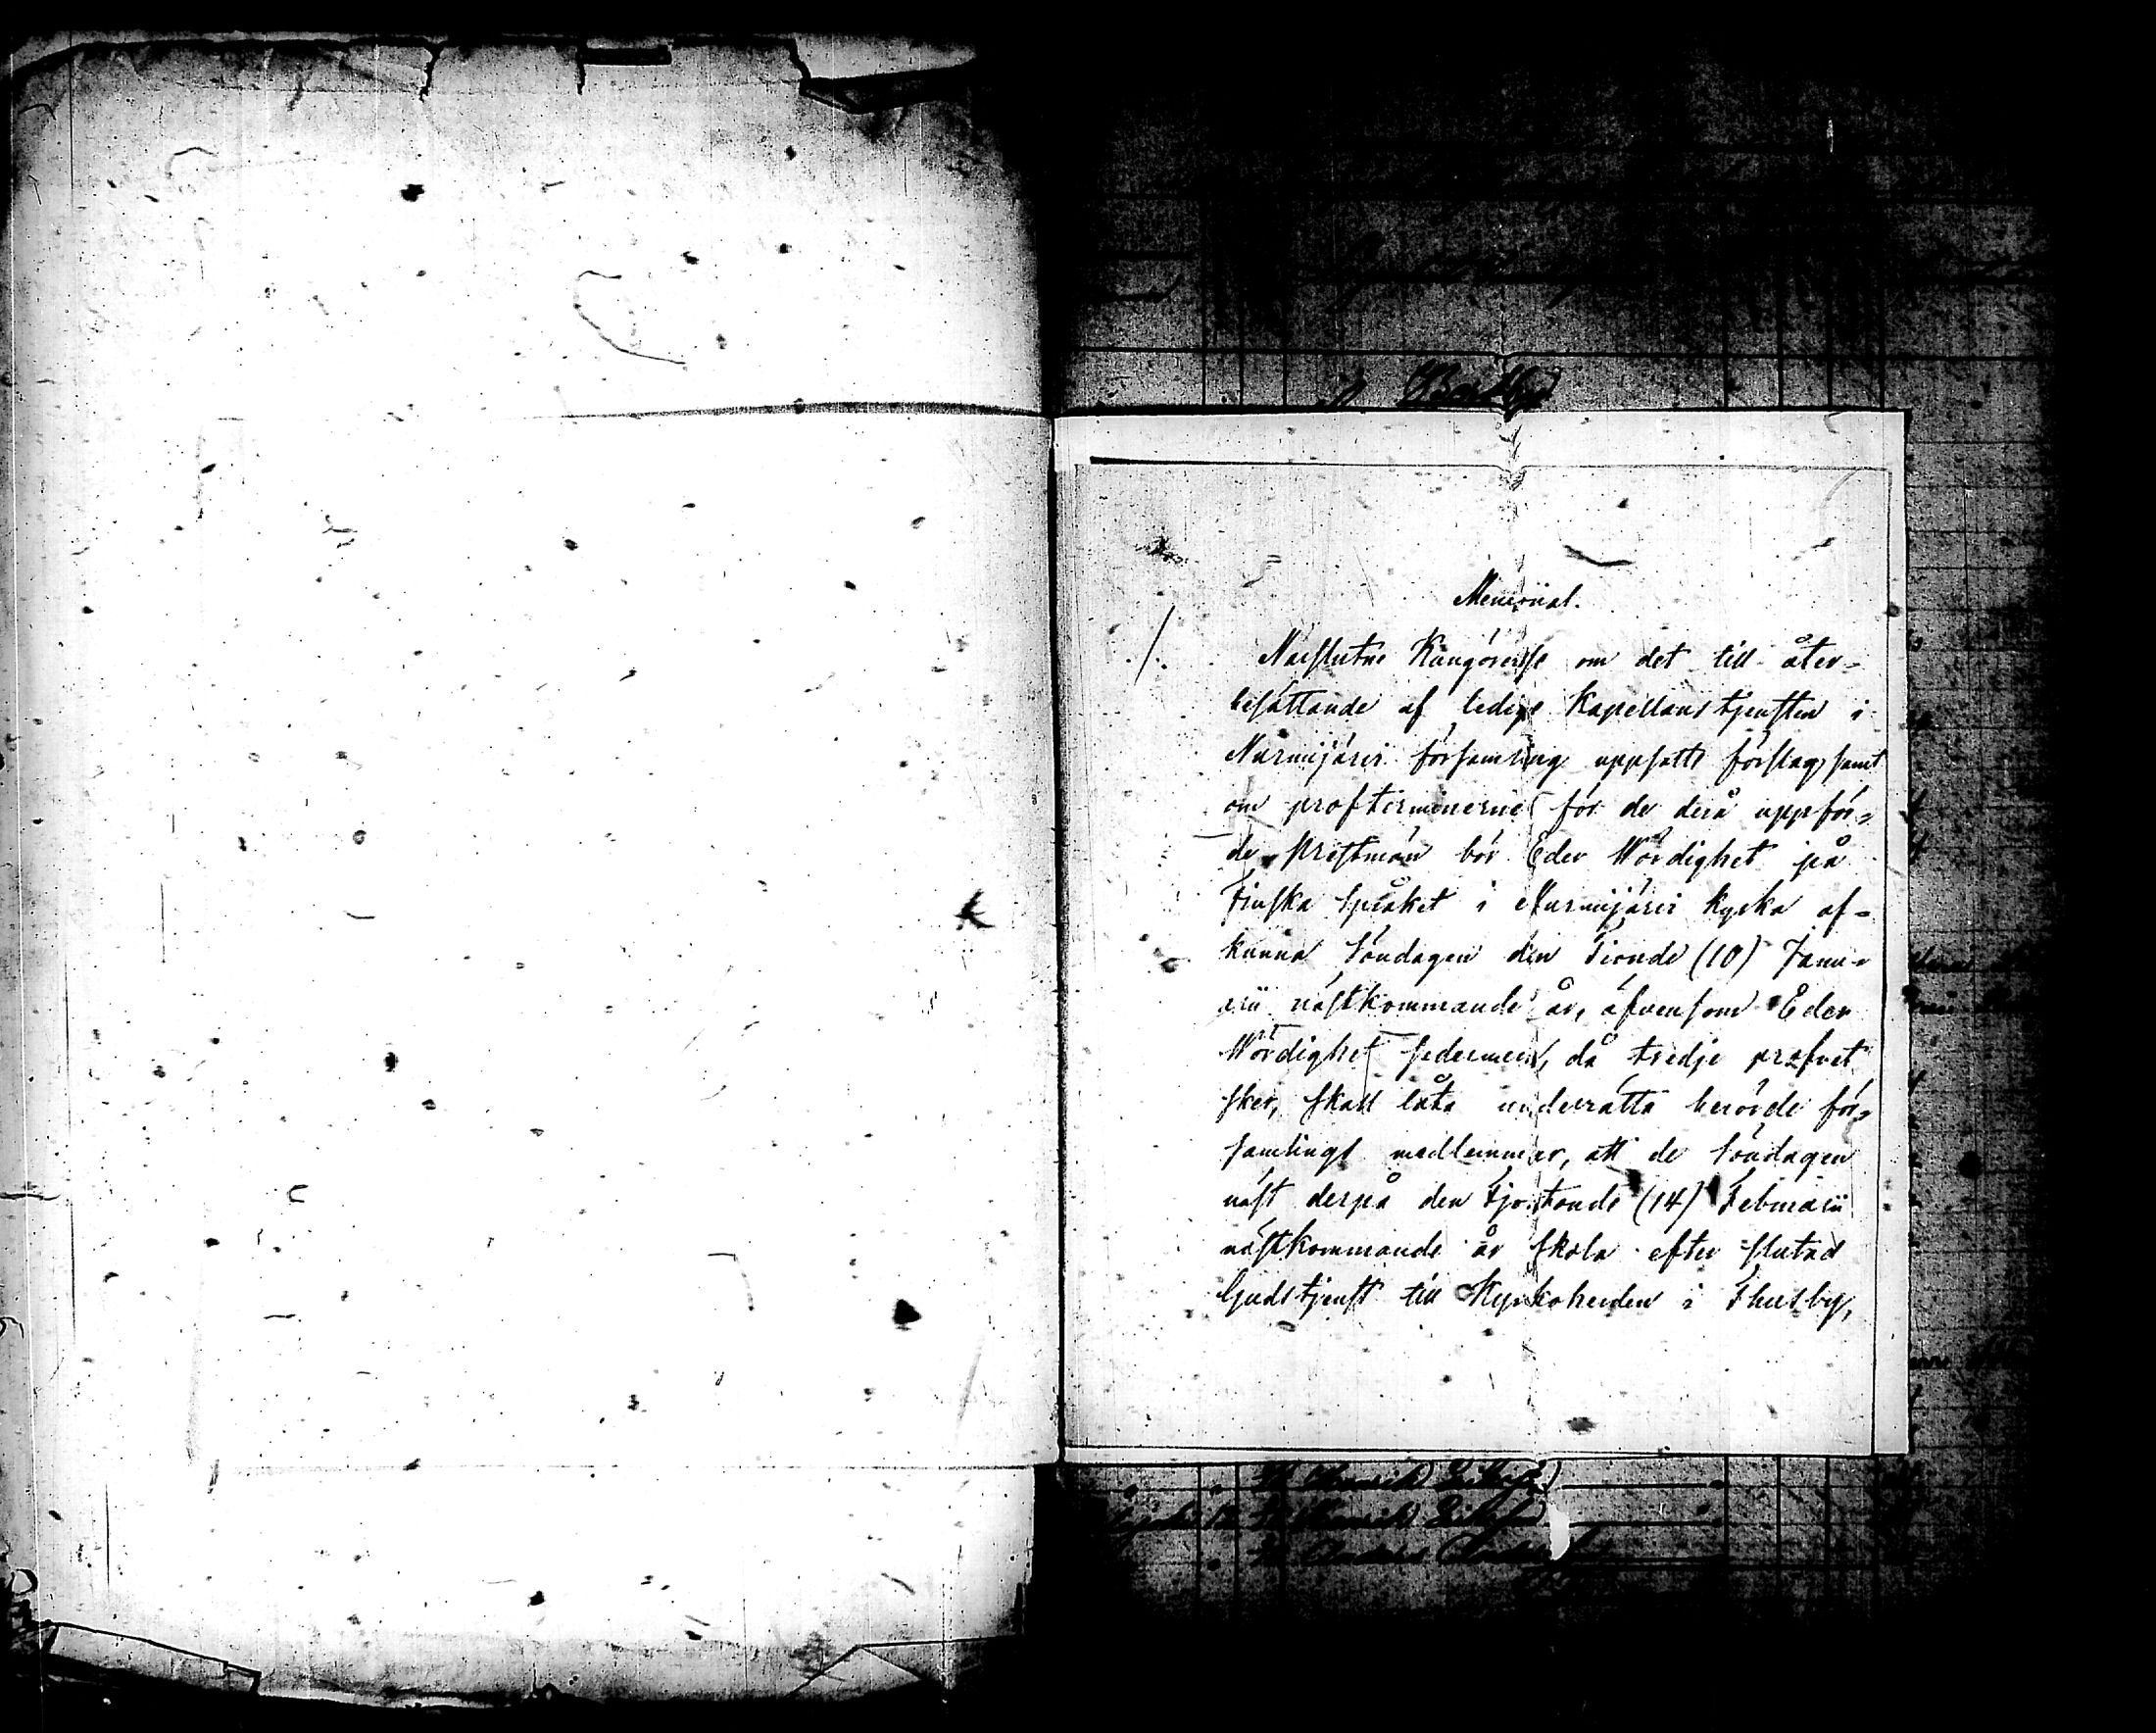 Memorial.
./. Närslutne Kungörelse om det till åter=
besättande af lediga Kapellans tjensten i
Nurmijärvi församling uppsatte förslag, samt
om profterminerne för de derå uppför=
de prestmän bör Eder Wördighet på
Finska språket i Nurmijärvi kyrka af=
kunna Söndagen den Tionde (10) Janu=
arii nästkommande år, äfvensom Eder
Wördighet sedermera, då tredje profvet
sker, skall låta underrätta berörde för=
samlings medlemmar, att de Söndagen
näst derpå den Fjortonde (14) Februarii
nästkommande år skola efter slutad
Gudstjenst till Kyrkoherden i Thusby,